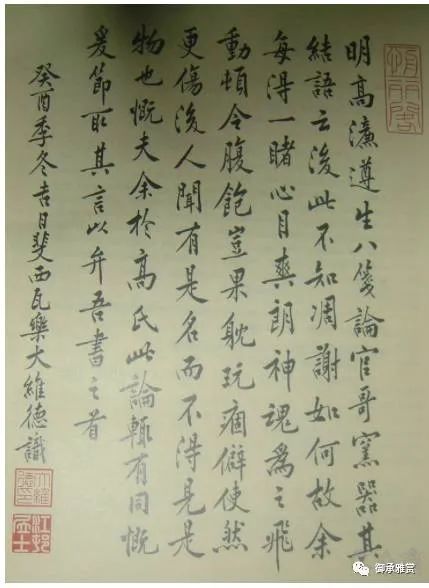 明高濂遵生八笺論官哥窯器其
結語云後此不知凋謝如何故余
每得一睹心目爽朗神魂為之飛
動頓令腹飽豈果耽玩痼僻使然
更傷後人聞有是名而不得見是
物也慨夫余於高氏此論輒有同慨
爰節取其言以弁吾書之首
癸酉季冬吉日斐西瓦樂大維德識
大維
德印
御承雅赏